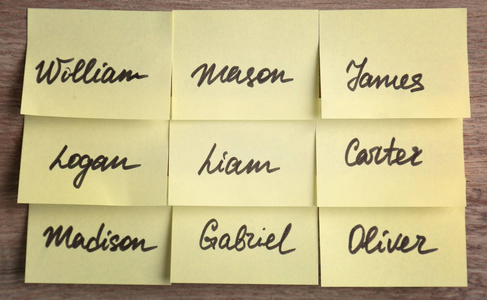 William Mason James
Logan Liam Carter
Madison Gabriel Oliver